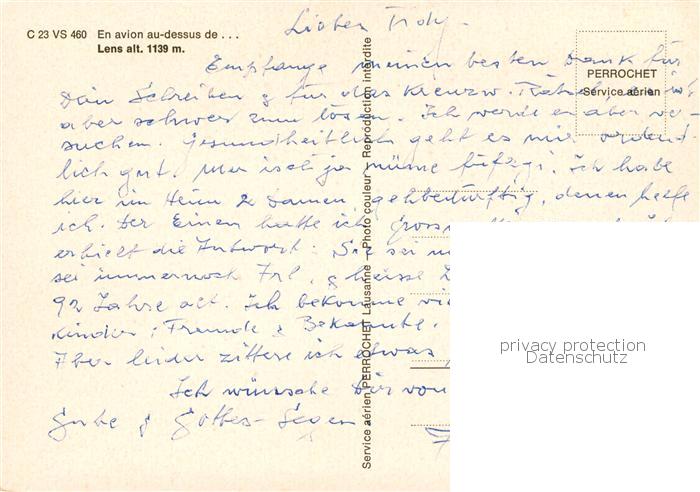 C 23 VS 460 En avion au-dessus de . . .
Lens alt. 1139 m.
Lieber
PERROCHET
Service aérien
Empfange meinen besten Dank für
Dein Schreiben & für das Kreuzw.
aber schwer zum lösen. Ich werde es aber ver-
suchen. Gesundheitlich geht es mir ordent-
lich gut. Man ist ja nüme füfzgi. Ich habe
hier im Heim 2 Damen, gehbedürftig, denen helfe
ich. Der Einen hatte ich gross
erhielt die Antwort: Sie sei
sei immernoch Frl. & heisse
92 Jahre alt. Ich bekomme
Kinder, Freunde & Bekannte.
Aber leider zittere ich etwas
Ich wünsche Dir von
& Gottes-Segen
Service aérien PERROCHET Lausanne – Photo couleur – Reproduction interdite
privacy protection
Datenschutz